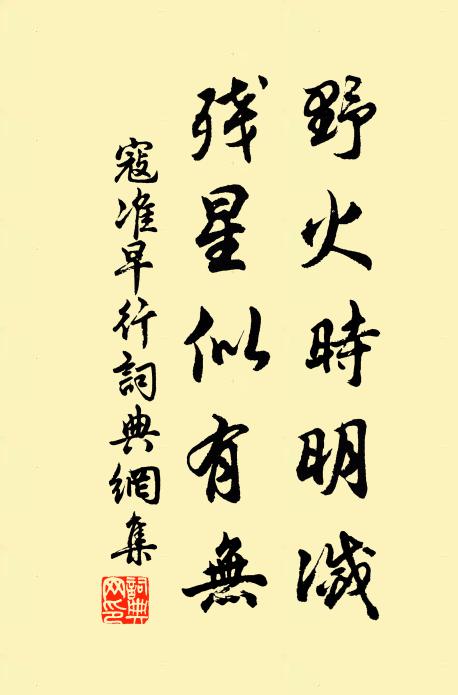 野火時明滅
残星似有無
寇准早行詞典網集
詞典网印